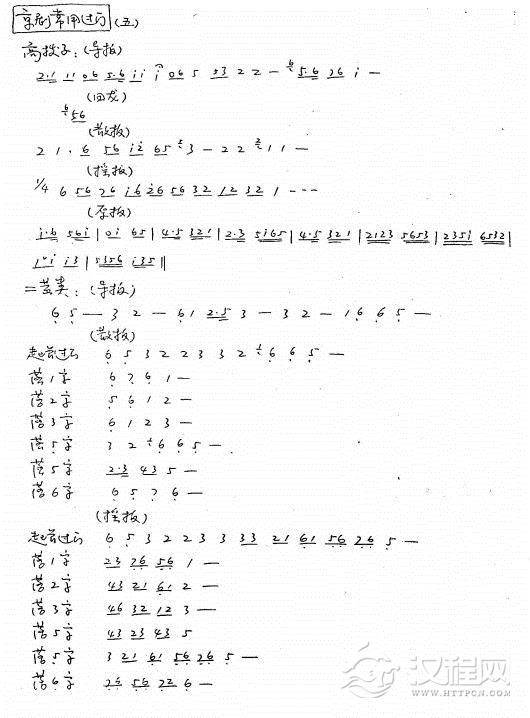 京剧常用过门(五)
高拨子：(导板)
2·1 11 06 5·6 i i i 06 5 53 2 2 — 6 5·6 76 i —
(回龙)
6 56
(散板)
2 1 · 6 56 i2 65 3 — 2 2 2 1 1 —
(摇板)
1/4 6 56 76 i6 26 56 32 12 32 1 - - -
(原板)
i·6 56i | 0i 65 | 4·5 321 | 2·3 5i65 | 4·5 321 | 2123 5653 | 2351 6532 |
i0i i3 | 5356 i35 ‖
二黄类：(导板)
6 5 — 3 2 — 61 2·5 3 — 3 2 — 1 6 6 5 —
(散板)
起首过门 6 5 3 2 2 3 3 2 6 6 5 —
落1字 6 7 6 1 —
落2字 5 6 1 2 —
落3字 6 1 2 3 —
落5字 3 2 6 6 5 —
落5字 2·3 43 5 —
落6字 6 5 7 6 —
(摇板)
起首过门 6 5 3 2 2 3 3 33 21 61 56 76 5 —
落1字 23 76 56 1 —
落2字 43 21 61 2 —
落3字 46 32 12 3 —
落5字 43 23 43 5
落5字 3 21 61 56 76 5 —
落6字 76 56 72 6 —
汉程网
WWW.HTTPCN.COM